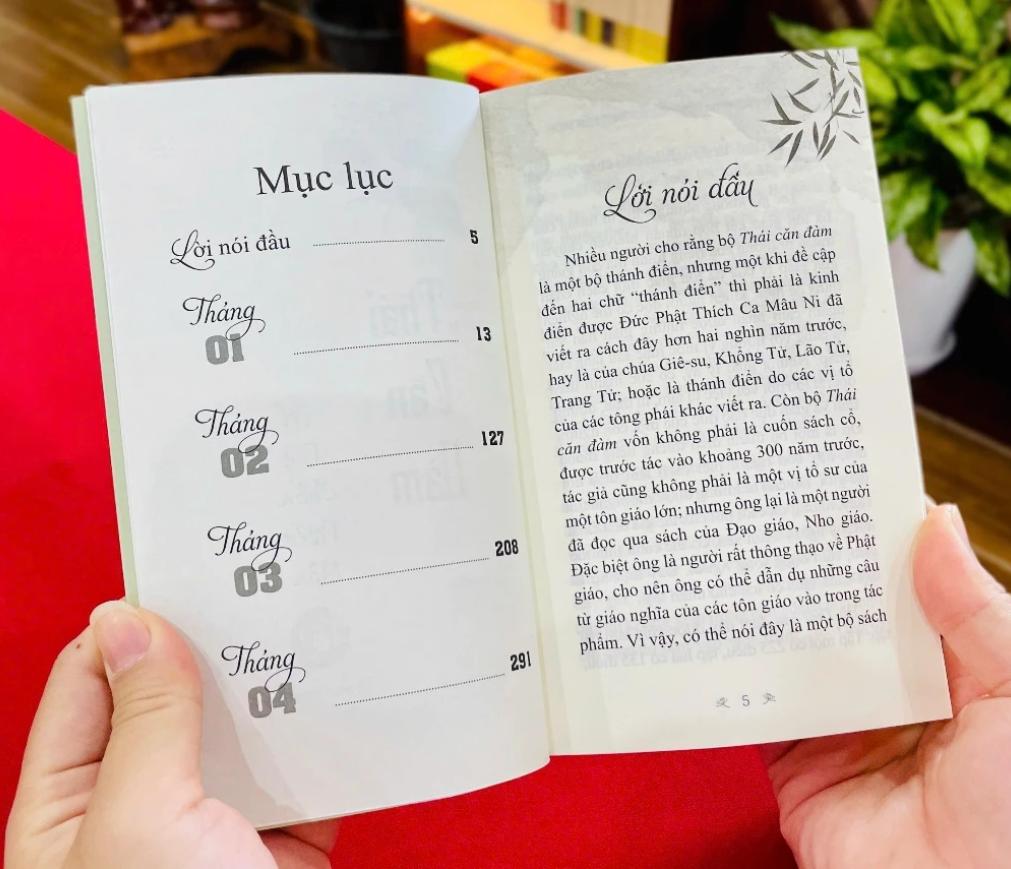 Mục lục
Lời nói đầu 5
Tháng
01 13
Tháng
02 127
Tháng
03 208
Tháng
04 291
Lời nói đầu
Nhiều người cho rằng bộ Thái căn đàm
là một bộ thánh điển, nhưng một khi đề cập
đến hai chữ “thánh điển” thì phải là kinh
điển được Đức Phật Thích Ca Mâu Ni đã
viết ra cách đây hơn hai nghìn năm trước,
hay là của chúa Giê-su, Khổng Tử, Lão Tử,
Trang Tử; hoặc là thánh điển do các vị tổ
của các tông phái khác viết ra. Còn bộ Thái
căn đàm vốn không phải là cuốn sách cổ,
được trước tác vào khoảng 300 năm trước,
tác giả cũng không phải là một vị tổ sư của
một tôn giáo lớn; nhưng ông lại là một người
đã đọc qua sách của Đạo giáo, Nho giáo.
Đặc biệt ông là người rất thông thạo về Phật
giáo, cho nên ông có thể dẫn dụ những câu
từ giáo nghĩa của các tôn giáo vào trong tác
phẩm. Vì vậy, có thể nói đây là một bộ sách
5